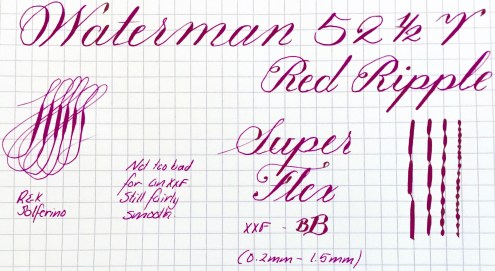 Waterman 52 ½ V
Red Ripple
Super
Flex
XXF - BB
(0.2mm - 1.5mm)
Not too bad
for an XXF
Still fairly
smooth
R&K
Solferino